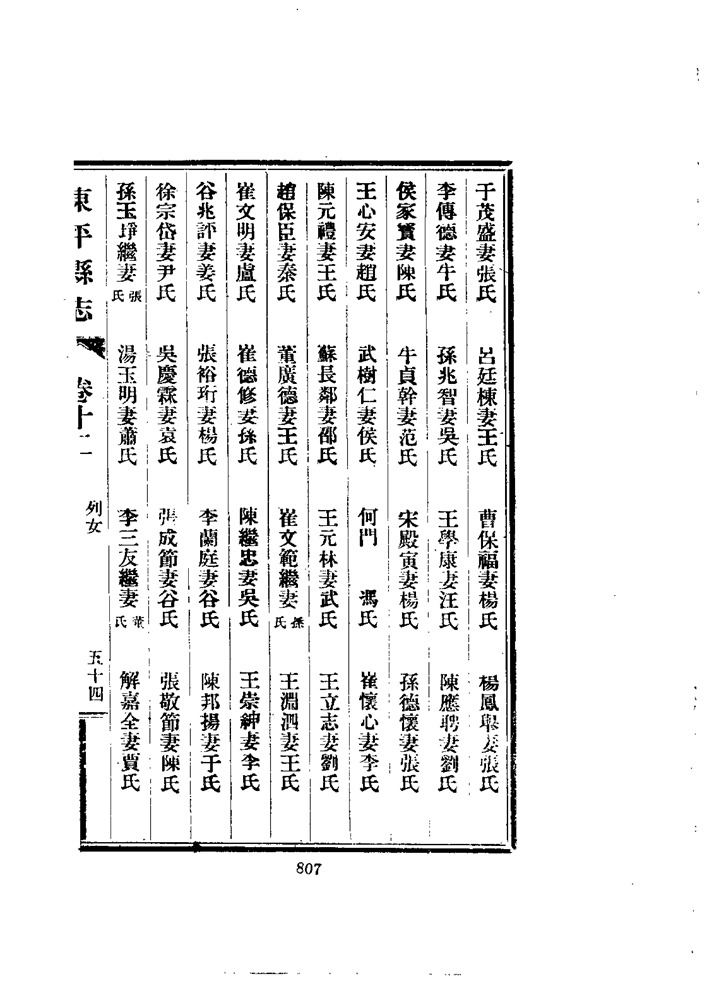 于茂盛妻張氏 呂廷棟妻王氏 曹保福妻楊氏 楊鳳舉妻張氏
李傳德妻牛氏 孫兆智妻吳氏 王學康妻汪氏 陳應聘妻劉氏
侯家賓妻陳氏 牛貞幹妻范氏 宋殿寅妻楊氏 孫德懷妻張氏
王心安妻趙氏 武樹仁妻侯氏 何門 馮氏 崔懷心妻李氏
陳元禮妻王氏 蘇長鄰妻邵氏 王元林妻武氏 王立志妻劉氏
趙保臣妻秦氏 董廣德妻王氏 崔文範繼妻孫氏 王淵泗妻王氏
崔文明妻盧氏 崔德修妻孫氏 陳繼忠妻吳氏 王崇紳妻李氏
谷兆評妻姜氏 張裕珩妻楊氏 李蘭庭妻谷氏 陳邦揚妻于氏
徐宗岱妻尹氏 吳慶霖妻袁氏 張成節妻谷氏 張敬節妻陳氏
孫玉琤繼妻張氏 湯玉明妻蕭氏 李三友繼妻董氏 解嘉全妻賈氏
東平縣志 卷十二 列女 五十四
807